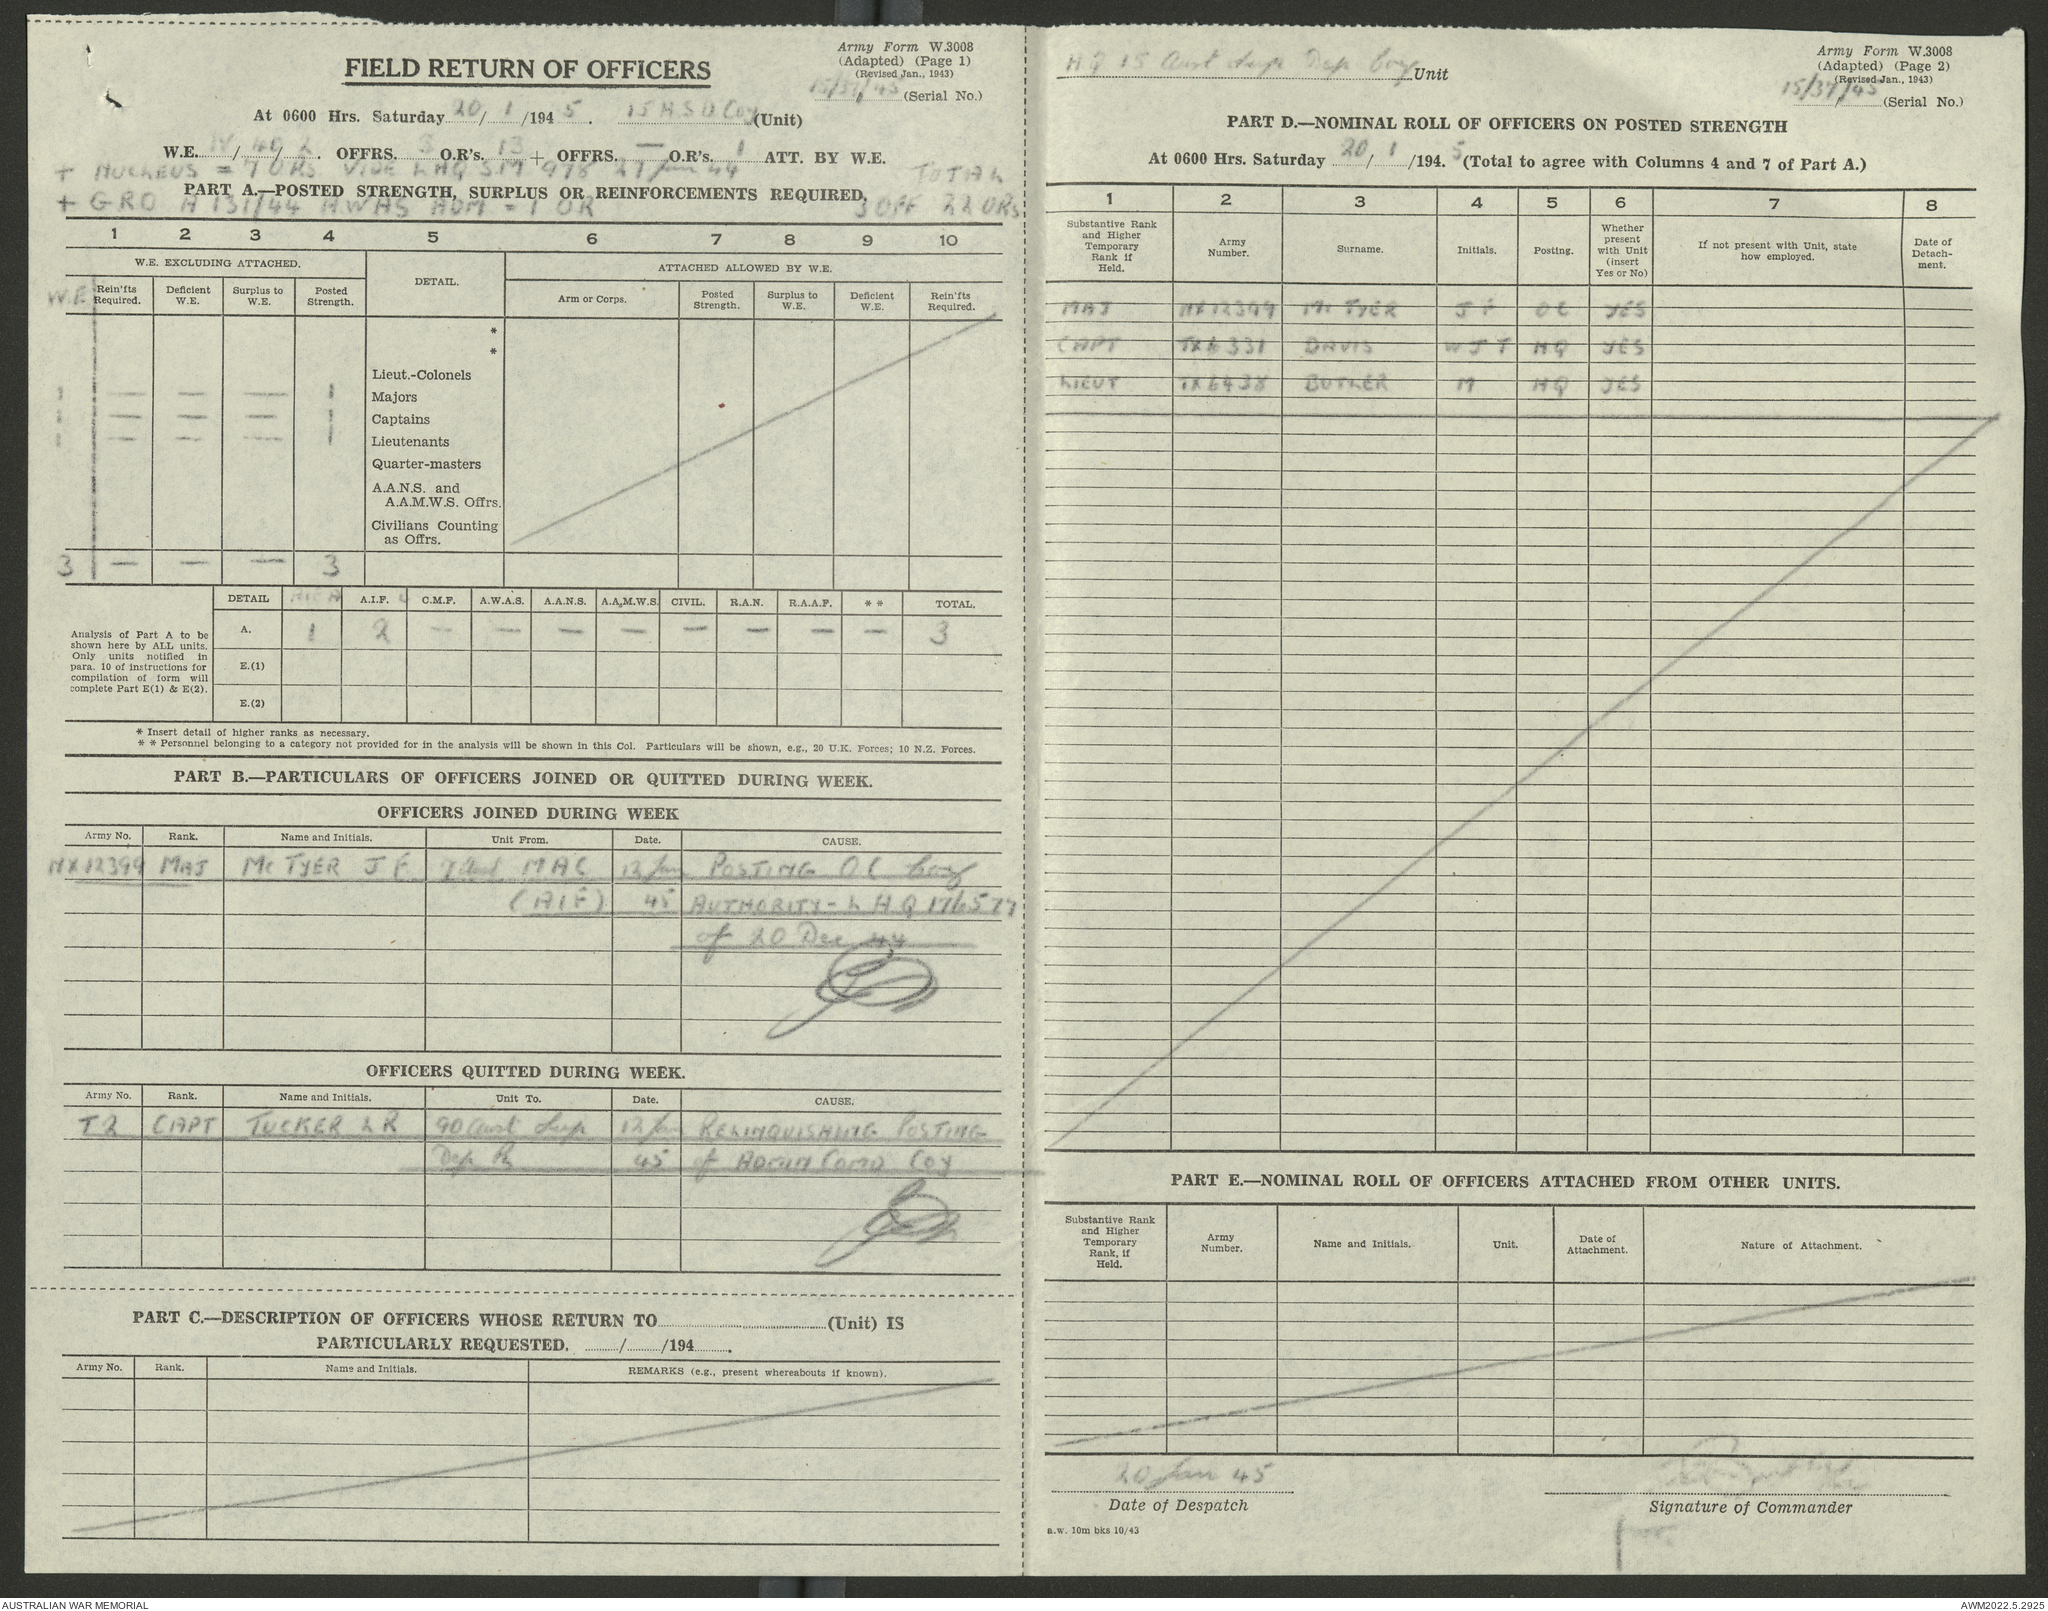 Army Form W.3008
(Adapted) (Page 1)
(Revised Jan., 1943)
15/37/45 (Serial No.)
FIELD RETURN OF OFFICERS
At 0600 Hrs. Saturday 20/1/1945. 15 A.S.D Coy (Unit)
W.E. IV/40/2. OFFRS. 3 O.R's. 13 + OFFRS. — O.R's. 1 ATT. BY W.E.
+ NUCLEUS = 7 ORS VIDE LHQ SM 978 27 Jun 44 TOTAL
PART A.—POSTED STRENGTH, SURPLUS OR REINFORCEMENTS REQUIRED.
+ GRO A 131/44 AWAS ADM = 1 OR 3 OFF 22 ORS
1 2 3 4 5 6 7 8 9 10
W.E. EXCLUDING ATTACHED. DETAIL. ATTACHED ALLOWED BY W.E.
W.E Rein'fts Required. Deficient W.E. Surplus to W.E. Posted Strength. Arm or Corps. Posted Strength. Surplus to W.E. Deficient W.E. Rein'fts Required.
*
*
Lieut.-Colonels
1 — — — 1 Majors
1 — — — 1 Captains
1 — — — 1 Lieutenants
Quarter-masters
A.A.N.S. and
A.A.M.W.S. Offrs.
Civilians Counting
as Offrs.
3 — — — 3
DETAIL A.I.F. C.M.F. A.W.A.S. A.A.N.S. A.A.M.W.S. CIVIL. R.A.N. R.A.A.F. * * TOTAL.
Analysis of Part A to be
shown here by ALL units.
Only units notified in
para. 10 of instructions for
compilation of form will
complete Part E(1) & E(2).
A. 1 2 — — — — — — — — 3
E.(1)
E.(2)
* Insert detail of higher ranks as necessary.
* * Personnel belonging to a category not provided for in the analysis will be shown in this Col. Particulars will be shown, e.g., 20 U.K. Forces; 10 N.Z. Forces.
PART B.—PARTICULARS OF OFFICERS JOINED OR QUITTED DURING WEEK.
OFFICERS JOINED DURING WEEK
Army No. Rank. Name and Initials. Unit From. Date. CAUSE.
NX12399 MAJ McTYER J F 7 Aust MAC 12 Jan POSTING OC Coy
(AIF) 45 AUTHORITY - L H Q 176577
of 20 Dec 44
OFFICERS QUITTED DURING WEEK.
Army No. Rank. Name and Initials. Unit To. Date. CAUSE.
T2 CAPT TUCKER L R 90 Aust Sup 12 Jan RELINQUISHING POSTING
Dep Pl 45 of ADMIN COMD COY
PART C.—DESCRIPTION OF OFFICERS WHOSE RETURN TO (Unit) IS
PARTICULARLY REQUESTED. / /194 .
Army No. Rank. Name and Initials. REMARKS (e.g., present whereabouts if known).
HQ 15 Aust Sup Dep Coy Unit
Army Form W.3008
(Adapted) (Page 2)
(Revised Jan., 1943)
15/37/45 (Serial No.)
PART D.—NOMINAL ROLL OF OFFICERS ON POSTED STRENGTH
At 0600 Hrs. Saturday 20/1/194.5 (Total to agree with Columns 4 and 7 of Part A.)
1 2 3 4 5 6 7 8
Substantive Rank and Higher Temporary Rank if Held. Army Number. Surname. Initials. Posting. Whether present with Unit (insert Yes or No) If not present with Unit, state how employed. Date of Detachment.
MAJ NX12399 McTYER J F OC YES
CAPT TX6331 DAVIS W J T HQ YES
LIEUT TX6438 BUTLER M HQ YES
PART E.—NOMINAL ROLL OF OFFICERS ATTACHED FROM OTHER UNITS.
Substantive Rank and Higher Temporary Rank, if Held. Army Number. Name and Initials. Unit. Date of Attachment. Nature of Attachment.
20 Jan 45
Date of Despatch
Signature of Commander
for
a.w. 10m bks 10/43
AUSTRALIAN WAR MEMORIAL
AWM2022.5.2925